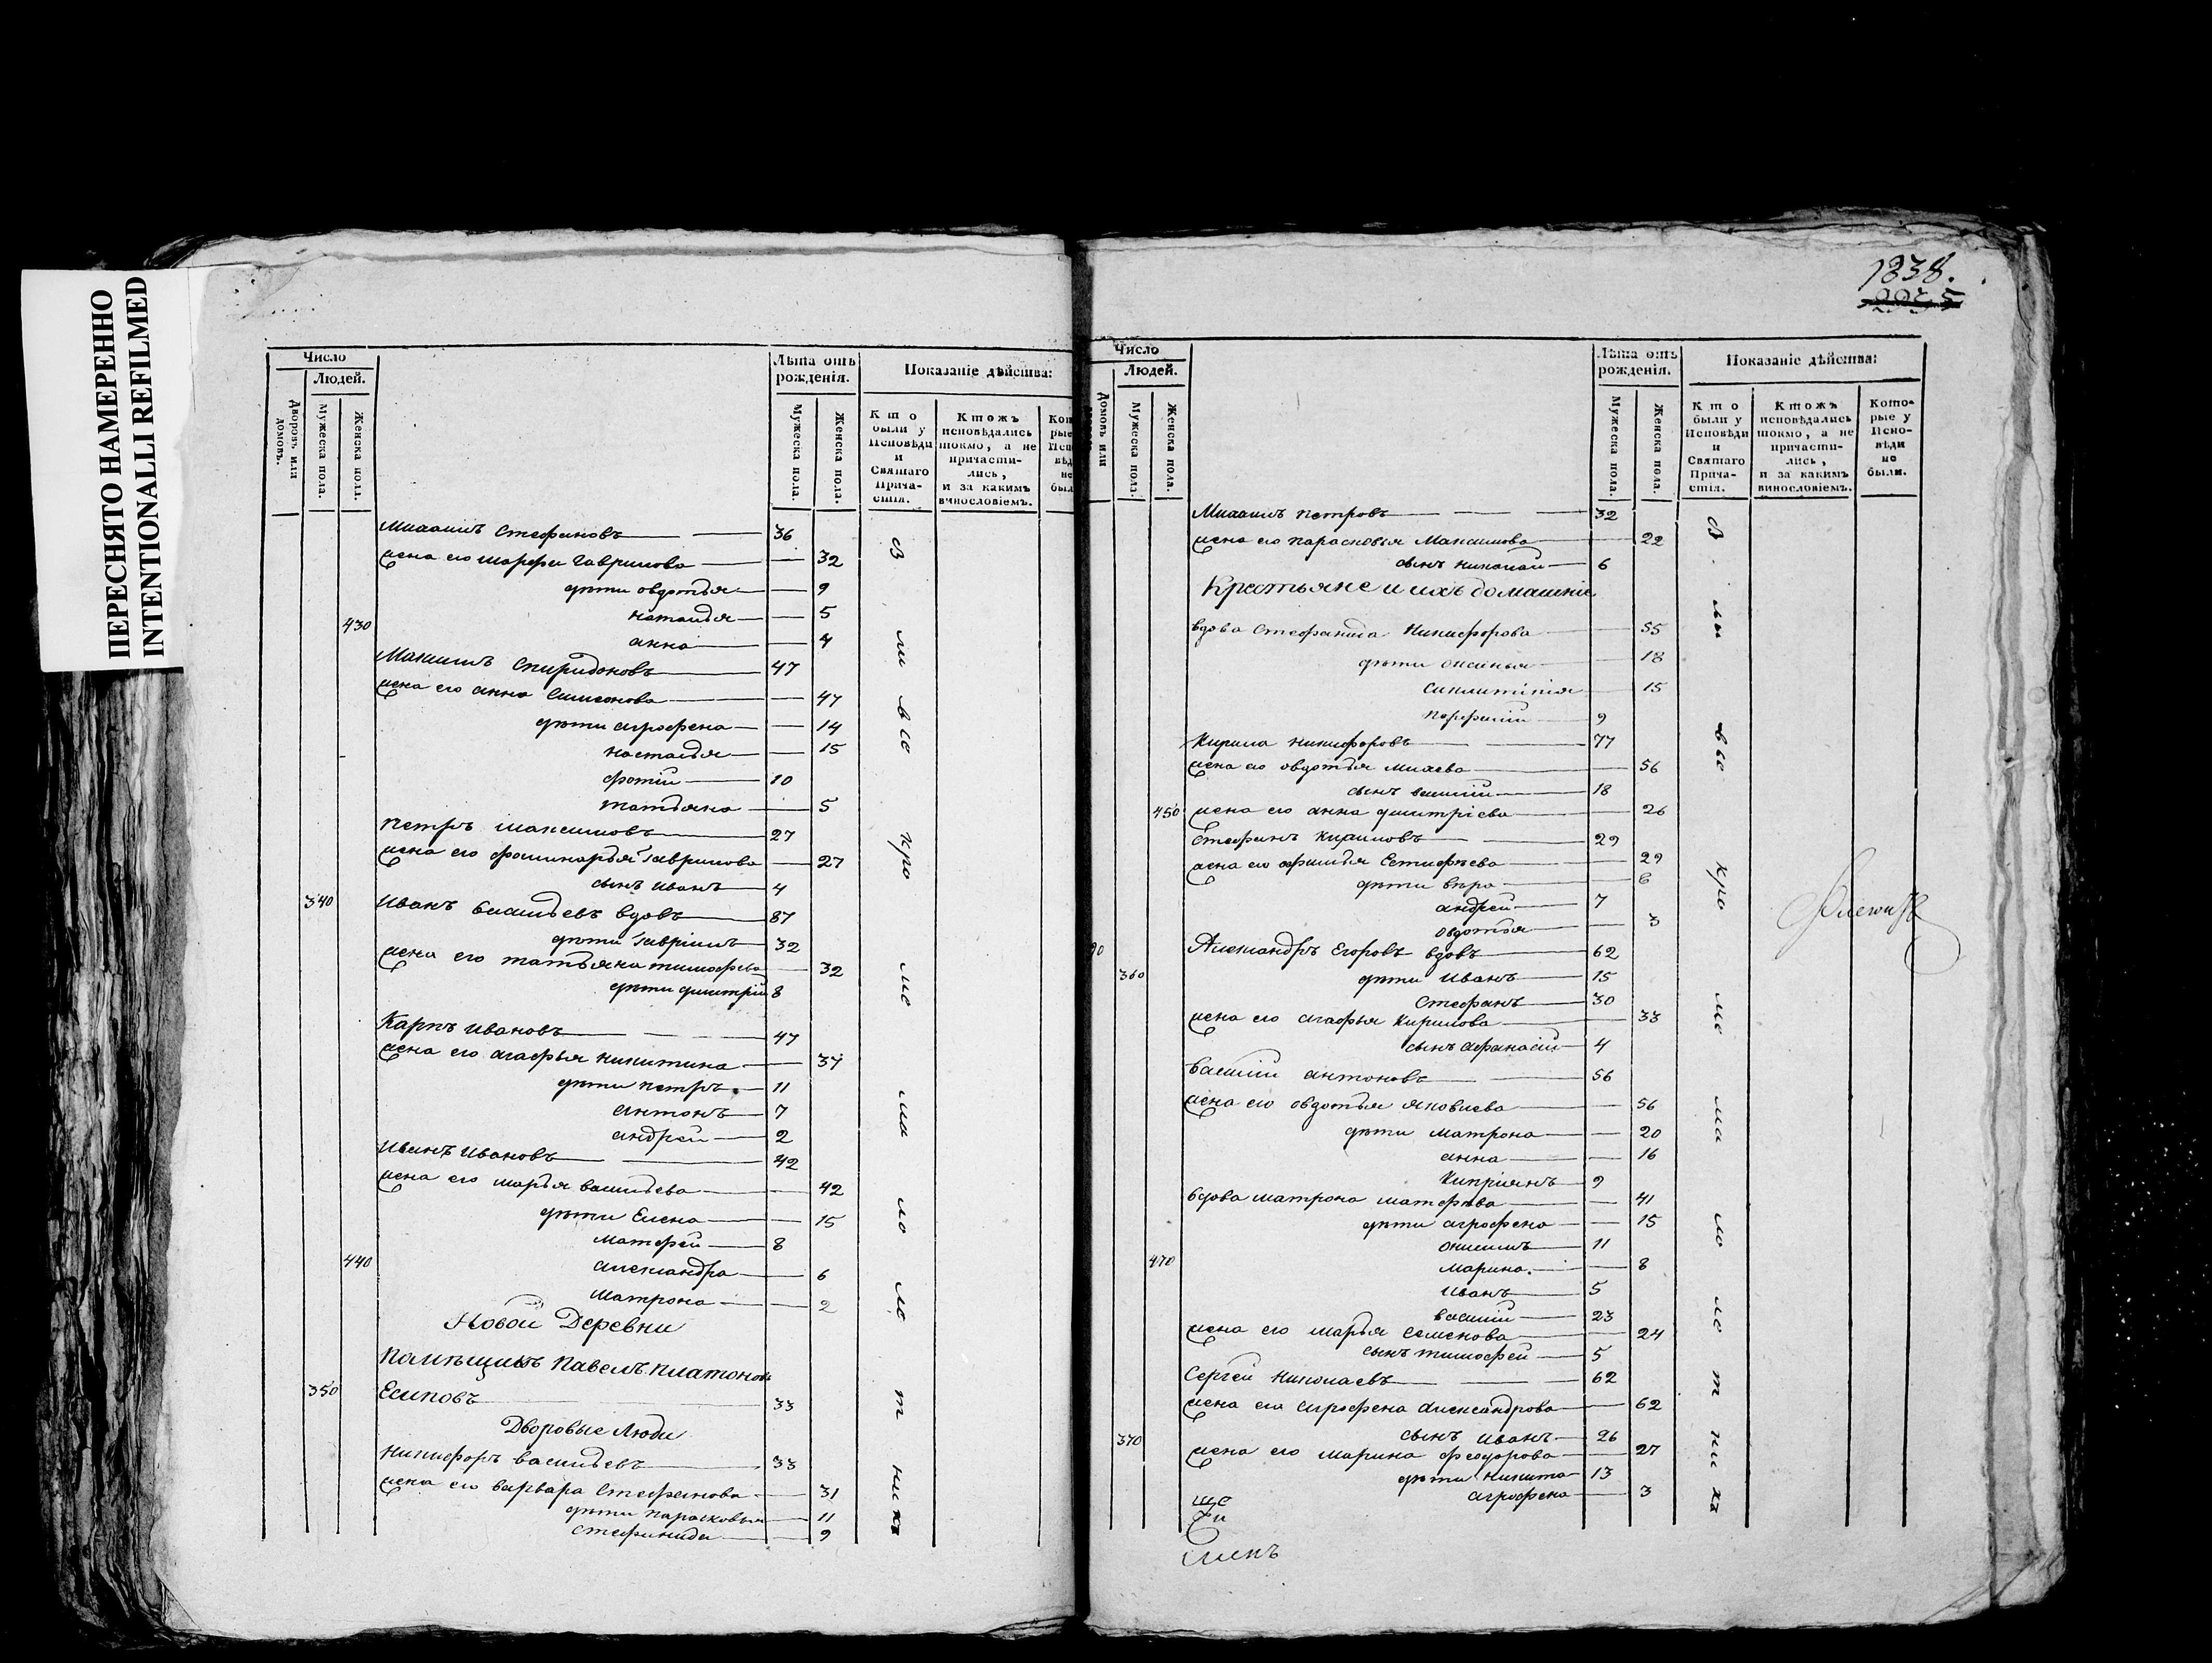 ПЕРЕСНЯТО НАМЕРЕННО
INTENTIONALLI REFILMED
Число
Людей.
Дворовъ или домовъ.
Мужеска пола.
Женска пола.
Лѣта отъ рожденія.
Мужеска пола.
Женска пола.
Показаніе дѣйства:
Кто были у Исповѣди и Святаго Прича-стія.
Ктожъ исповѣдались токмо, а не причасти-лись, и за какимъ винословіемъ.
Михаилъ Стефановъ 36
жена его марфа Гаврилова 32
дѣти овдотья 9
наталья 5
430 анна 4
Максимъ Спиридоновъ 47
жена его анна Симеонова 47
дѣти агрофена 14
насталья 15
фотій 10
татьяна 5
Петръ максимовъ 27
жена его Гаврилова 27
сынъ иванъ 4
340 Иванъ васильевъ вдовъ 87
дѣти Гавріилъ 32
жена его татьяна тимофева 32
дѣти дмитрій 8
Карпъ ивановъ 47
жена его агафья никитина 37
дѣти петръ 11
антонъ 7
андрей 2
Иванъ Ивановъ 42
жена его марья васильева 42
дѣти Елена 15
матфей 8
440 александра 6
матрона 2
Новой Деревни
Помѣщикъ Павелъ Платоновъ
350 Есиповъ 33
Дворовые Люди
Никифоръ васильевъ 33
жена его варвара Стефанова 31
дѣти парасковья 11
стефанида 9
В ми все кро ме ма ло ле т ни хъ
1838.
Число
Людей.
Домовъ или
Мужеска пола.
Женска пола.
Лѣта отъ рожденія.
Мужеска пола.
Женска пола.
Показаніе дѣйства:
Кто были у Исповѣди и Святаго Прича-стія.
Ктожъ исповѣдались токмо, а не причасти-лись, и за какимъ винословіемъ.
Кото-рые у Испо-вѣди не были.
Михаилъ петровъ 32
жена его парасковья Максимова 22
сынъ николай 6
Крестьяне и ихъ домашніе
вдова Стефанида Никифорова 55
дѣти оксинья 18
синклитикія 15
порфирій 9
Кирила никифоровъ 77
жена его овдотья михева 56
сынъ василій 18
450 жена его анна дмитріева 26
Стефанъ Кириловъ 29
жена его Естифѣева 29
дѣти вѣра 8
андрей 7
овдотья 3
Александръ Егоровъ вдовъ 62
360 дѣти Иванъ 15
Стефанъ 30
жена его агафья Кирилова 33
сынъ афанасій 4
Василій антоновъ 56
жена его овдотья яковлева 56
дѣти матрона 20
анна 16
Кипріянъ 9
вдова матрона матфѣева 41
дѣти агрофена 15
онисимъ 11
470 марина 8
иванъ 5
василій 23
жена его марья семенова 24
сынъ тимофей 5
Сергей николаевъ 62
жена его агрофена александрова 62
370 сынъ иванъ 26
жена его марина феодорова 27
дѣти никита 13
агрофена 3
В мы все кро ме ма ло ле т ни хъ